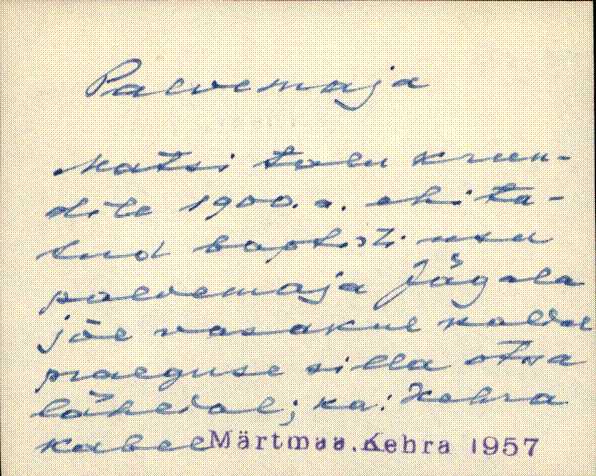 Palvemaja
Matsi talu krun-
dile 1900. a. ehita-
tud baptisti usu
palvemaja Jägala
jõe vasakul kaldal
praeguse silla otsa
lähedal; ka: Kehra
kabel
Märtmaa, Kehra 1957